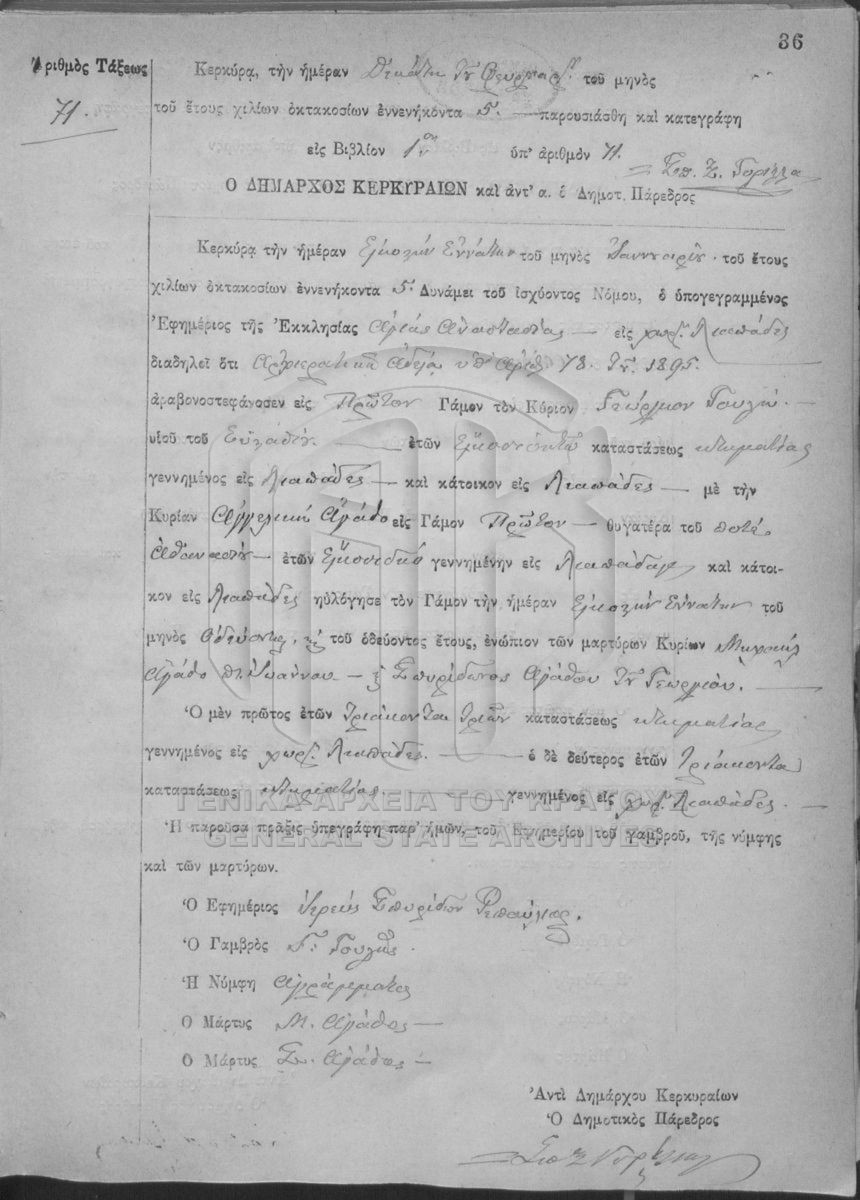 36
Ἀριθμὸς Τάξεως
71.
Κερκύρᾳ, τὴν ἡμέραν Δεκάτη τοῦ Φεβρουαρ. τοῦ μηνὸς
τοῦ ἔτους χιλίων ὀκτακοσίων ἐννενήκοντα 5. παρουσιάσθη καὶ κατεγράφη
εἰς Βιβλίον 1ον ὑπ' ἀριθμὸν 71.
Ο ΔΗΜΑΡΧΟΣ ΚΕΡΚΥΡΑΙΩΝ καὶ ἀντ' α. ὁ Δημοτ. Πάρεδρος
Κερκύρᾳ τὴν ἡμέραν Εἰκοστὴν Ἐννάτην τοῦ μηνὸς Ἰαννουαρίου. τοῦ ἔτους
χιλίων ὀκτακοσίων ἐννενήκοντα 5. Δυνάμει τοῦ ἰσχύοντος Νόμου, ὁ ὑπογεγραμμένος
Ἐφημέριος τῆς Ἐκκλησίας Ἁγίας Ἀναστασίας — εἰς χωρ. Λιαπάδες
διαδηλεῖ ὅτι Ἀρχιερατικῇ Ἀδείᾳ ὑπ' ἀριθ. 78. 1895.
ἀραβονοστεφάνοσεν εἰς Πρῶτον Γάμον τὸν Κύριον Γεώργιον Γουλῆν. —
υἱοῦ τοῦ Εὐσταθίου — ἐτῶν Εἰκοσιοκτὼ καταστάσεως κτηματίας
γεννημένος εἰς Λιαπάδες — καὶ κάτοικον εἰς Λιαπάδες — μὲ τὴν
Κυρίαν Ἀγγελικὴν Ἀγάθο εἰς Γάμον Πρῶτον — θυγατέρα τοῦ ποτέ.
Ἀθανασίου — ἐτῶν γεννημένην εἰς Λιαπάδες καὶ κάτοι-
κον εἰς Λιαπάδες ηὐλόγησε τὸν Γάμον τὴν ἡμέραν Εἰκοστὴν Ἐννάτην τοῦ
μηνὸς ὁδεύοντος τοῦ ὁδεύοντος ἔτους, ἐνώπιον τῶν μαρτύρων Κυρίων Μιχαὴλ
Ἀγάθο π. Ἰωάννου — κ Σπυρίδωνος Ἀγάθου τοῦ Γεωργίου. —
Ὁ μὲν πρῶτος ἐτῶν Τριάκοντα τριῶν καταστάσεως κτηματίας
γεννημένος εἰς χωρ. Λιαπάδες. — ὁ δὲ δεύτερος ἐτῶν Τριάκοντα
καταστάσεως κτηματίας. — γεννημένος εἰς χωρ. Λιαπάδες. —
Ἡ παροῦσα πρᾶξις ὑπεγράφη παρ' ἡμῶν, τοῦ Ἐφημερίου τοῦ γαμβροῦ, τῆς νύμφης
καὶ τῶν μαρτύρων.
ΓΕΝΙΚΑ ΑΡΧΕΙΑ ΤΟΥ ΚΡΑΤΟΥΣ
GENERAL STATE ARCHIVES
Ὁ Ἐφημέριος ἱερεὺς Σπυρίδων
Ὁ Γαμβρὸς Γ. Γουλῆς.
Ἡ Νύμφη Ἀγράμματος
Ὁ Μάρτυς Μ. Ἀγάθος —
Ὁ Μάρτυς Σ. Ἀγάθος —
Ἀντὶ Δημάρχου Κερκυραίων
Ὁ Δημοτικὸς Πάρεδρος